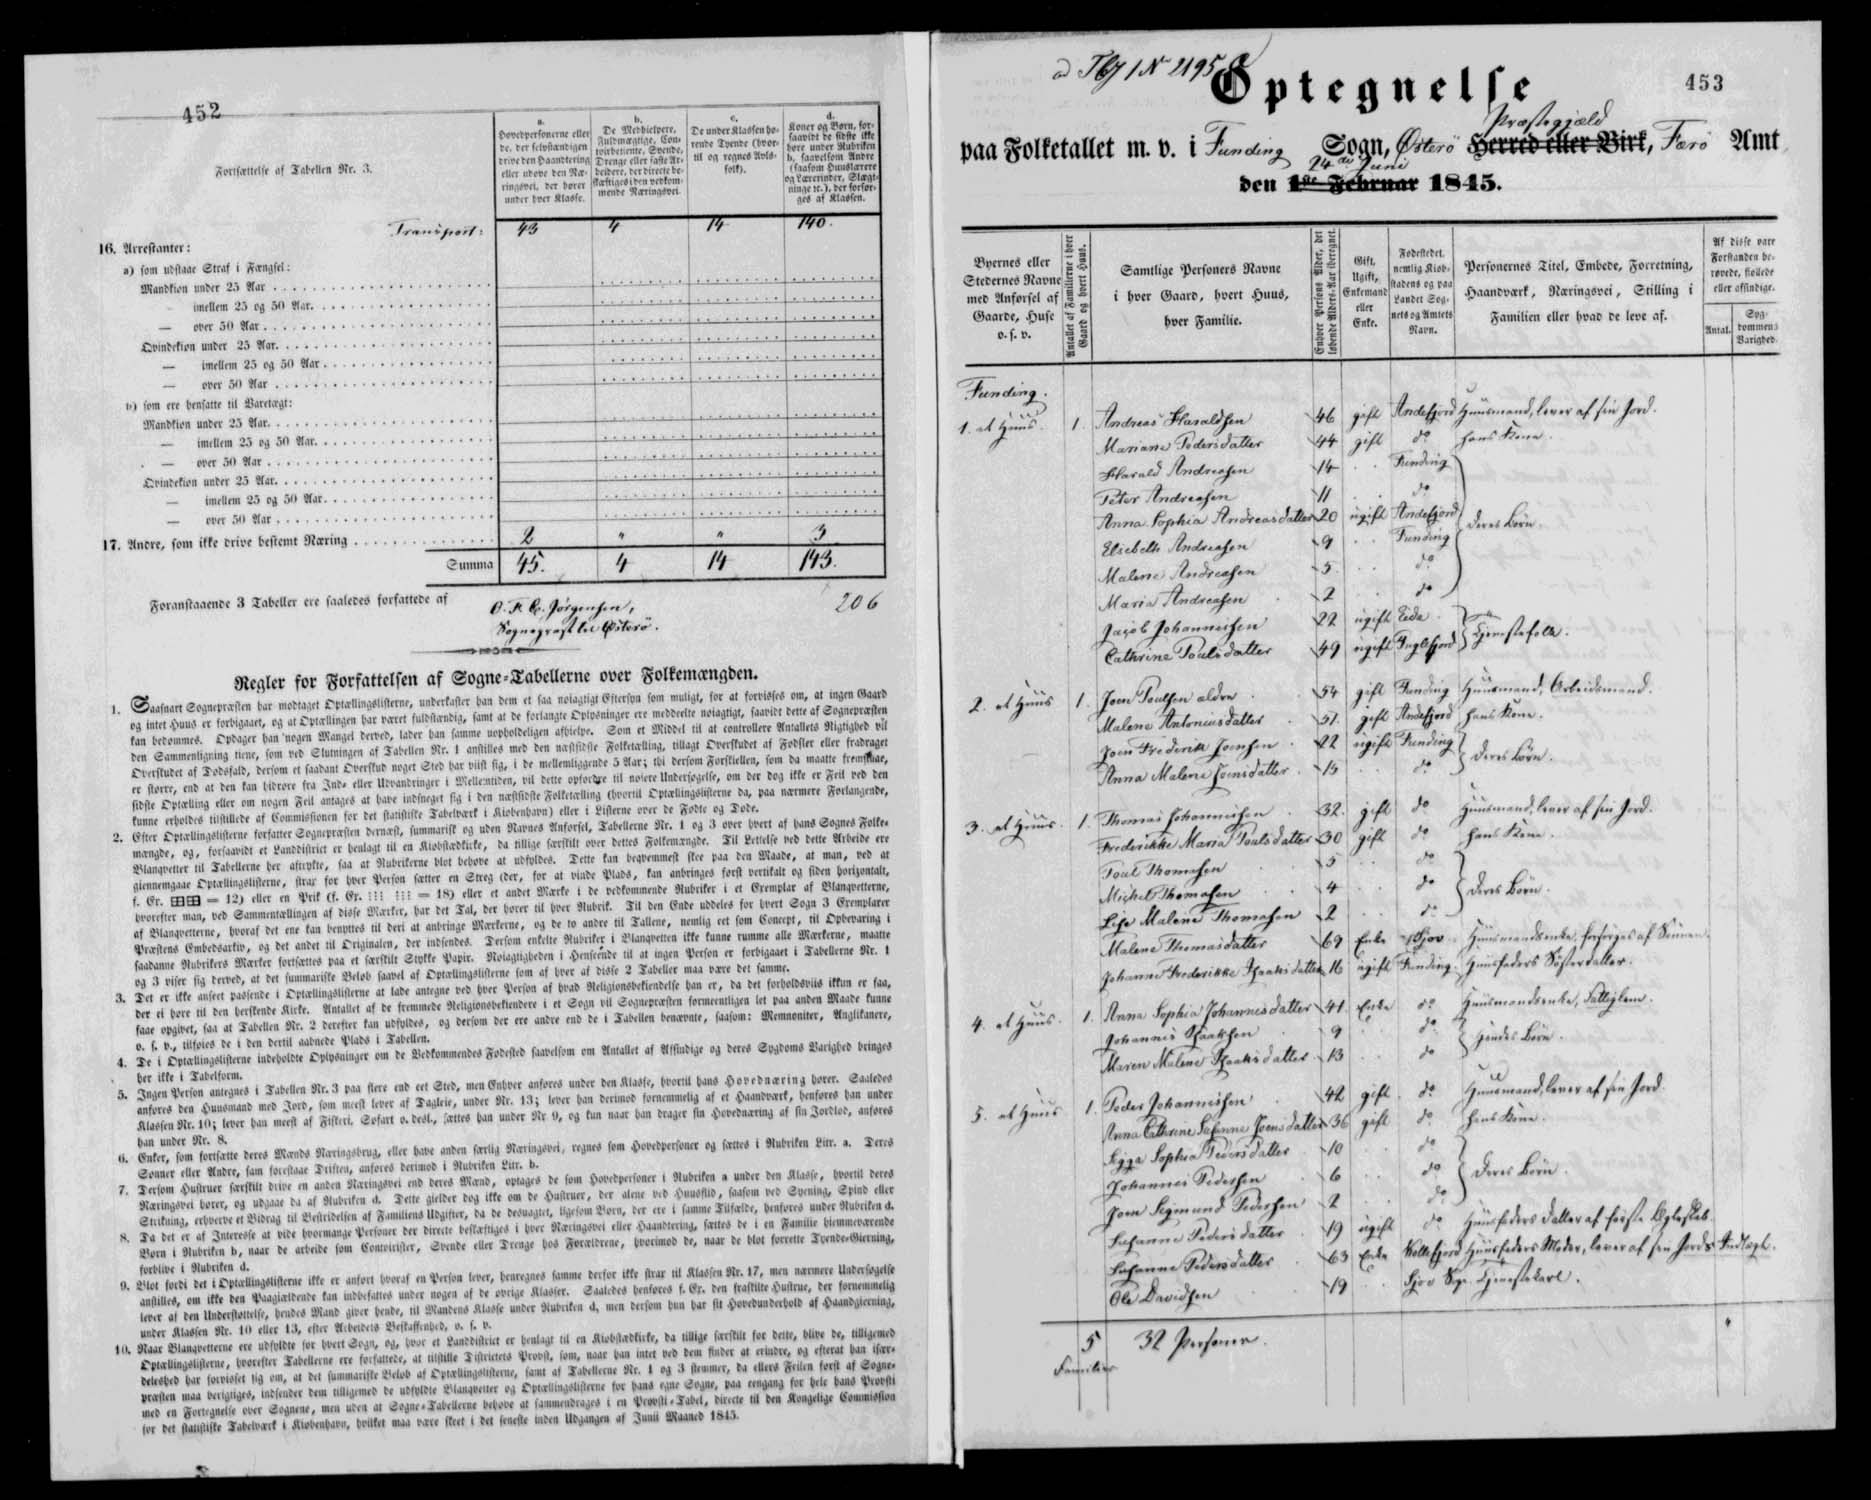 452
Fortsættelse af Tabellen Nr. 3.
a.
Hovedpersonerne eller
de, der selvstændigen
drive den Haandtering
eller udøve den Næ-
ringsvei, der hører
under hver Klasse.
b.
De Medhielpere,
Fuldmægtige, Con-
toirbetiente, Svende,
Drenge eller faste Ar-
beidere, der directe be-
skæftiges i den vedkom-
mende Næringsvei.
c.
De under Klassen hø-
rende Tyende (hvor-
til og regnes Avls-
folk).
d.
Koner og Børn, for-
saavidt de sidste ikke
høre under Rubriken
b, saavelsom Andre
(saasom Huuslærere
og Lærerinder, Slægt-
ninge ꝛc.), der forsør-
ges af Klassen.
Transport: 43 4 14 140.
16. Arrestanter:
a) som udstaae Straf i Fængsel:
Mandkiøn under 25 Aar
— imellem 25 og 50 Aar.
— over 50 Aar
Qvindekiøn under 25 Aar.
— imellem 25 og 50 Aar
— over 50 Aar
b) som ere hensatte til Varetægt:
Mandkiøn under 25 Aar.
— imellem 25 og 50 Aar.
— over 50 Aar
Qvindekiøn under 25 Aar.
— imellem 25 og 50 Aar.
— over 50 Aar
17. Andre, som ikke drive bestemt Næring 2 " " 3
Summa 45. 4 14 143.
Foranstaaende 3 Tabeller ere saaledes forfattede af
206
Jørgensen,
Sognepræst til Østerö.
Regler for Forfattelsen af Sogne-Tabellerne over Folkemængden.
1. Saasnart Sognepræsten har modtaget Optællingslisterne, underkaster han dem et saa nøiagtigt Eftersyn som muligt, for at forvisses om, at ingen Gaard
og intet Huus er forbigaaet, og at Optællingen har været fuldstændig, samt at de forlangte Oplysninger ere meddeelte nøiagtigt, saavidt dette af Sognepræsten
kan bedømmes. Opdager han nogen Mangel derved, lader han samme uopholdeligen afhielpe. Som et Middel til at controllere Antallets Rigtighed vil
den Sammenligning tiene, som ved Slutningen af Tabellen Nr. 1 anstilles med den næstsidste Folketælling, tillagt Overskudet af Fødsler eller fradraget
Overskudet af Dødsfald, dersom et saadant Overskud noget Sted har viist sig, i de mellemliggende 5 Aar; thi dersom Forskiellen, som da maatte fremstaae,
er større, end at den kan hidrøre fra Ind- eller Udvandringer i Mellemtiden, vil dette opfordre til nøiere Undersøgelse, om der dog ikke er Feil ved den
sidste Optælling eller om nogen Feil antages at have indsneget sig i den næstsidste Folketælling (hvortil Optællingslisterne da, paa nærmere Forlangende,
kunne erholdes tilstillede af Commissionen for det statistiske Tabelværk i Kiøbenhavn) eller i Listerne over de Fødte og Døde.
2. Efter Optællingslisterne forfatter Sognepræsten dernæst, summarisk og uden Navnes Anførsel, Tabellerne Nr. 1 og 3 over hvert af hans Sognes Folke-
mængde, og, forsaavidt et Landdistrict er henlagt til en Kiøbstædkirke, da tillige særskilt over dettes Folkemængde. Til Lettelse ved dette Arbeide ere
Blanqvetter til Tabellerne her aftrykte, saa at Rubrikerne blot behøve at udfyldes. Dette kan beqvemmest skee paa den Maade, at man, ved at
giennemgaae Optællingslisterne, strax for hver Person sætter en Streg (der, for at vinde Plads, kan anbringes først vertikalt og siden horizontalt,
f. Ex. ⊞⊞ = 12) eller en Prik (f. Ex. ⁝⁝⁝ ⁝⁝⁝ = 18) eller et andet Mærke i de vedkommende Rubriker i et Exemplar af Blanqvetterne,
hvorefter man, ved Sammentællingen af disse Mærker, har det Tal, der hører til hver Rubrik. Til den Ende uddeles for hvert Sogn 3 Exemplarer
af Blanqvetterne, hvoraf det ene kan benyttes til deri at anbringe Mærkerne, og de to andre til Tallene, nemlig eet som Concept, til Opbevaring i
Præstens Embedsarkiv, og det andet til Originalen, der indsendes. Dersom enkelte Rubriker i Blanqvetten ikke kunne rumme alle Mærkerne, maatte
saadanne Rubrikers Mærker fortsættes paa et særskilt Stykke Papir. Nøiagtigheden i Henseende til at ingen Person er forbigaaet i Tabellerne Nr. 1
og 3 viser sig derved, at det summariske Beløb saavel af Optællingslisterne som af hver af disse 2 Tabeller maa være det samme.
3. Det er ikke anseet passende i Optællingslisterne at lade antegne ved hver Person af hvad Religionsbekiendelse han er, da det forholdsviis ikkun er faa,
der ei høre til den herskende Kirke. Antallet af de fremmede Religionsbekiendere i et Sogn vil Sognepræsten formeentligen let paa anden Maade kunne
faae opgivet, saa at Tabellen Nr. 2 derefter kan udfyldes, og dersom der ere andre end de i Tabellen benævnte, saasom: Memnoniter, Anglikanere,
o. s. v., tilføies de i den dertil aabnede Plads i Tabellen.
4. De i Optællingslisterne indeholdte Oplysninger om de Vedkommendes Fødested saavelsom om Antallet af Afsindige og deres Sygdoms Varighed bringes
her ikke i Tabelform.
5. Ingen Person antegnes i Tabellen Nr. 3 paa flere end eet Sted, men Enhver anføres under den Klasse, hvortil hans Hovednæring hører. Saaledes
anføres den Huusmand med Jord, som meest lever af Dagleie, under Nr. 13; lever han derimod fornemmelig af et Haandværk, henføres han under
Klassen Nr. 10; lever han meest af Fiskeri, Søfart o. desl., sættes han under Nr. 9, og kun naar han drager sin Hovednæring af sin Jordlod, anføres
han under Nr. 8.
6. Enker, som fortsætte deres Mænds Næringsbrug, eller have anden særlig Næringsvei, regnes som Hovedpersoner og sættes i Rubriken Litr. a. Deres
Sønner eller Andre, som forestaae Driften, anføres derimod i Rubriken Litr. b.
7. Dersom Hustruer særskilt drive en anden Næringsvei end deres Mænd, optages de som Hovedpersoner i Rubriken a under den Klasse, hvortil deres
Næringsvei hører, og udgaae da af Rubriken d. Dette gielder dog ikke om de Hustruer, der alene ved Huusflid, saasom ved Syening, Spind eller
Strikning, erhverve et Bidrag til Bestridelsen af Familiens Udgifter, da de desuagtet, ligesom Børn, der ere i samme Tilfælde, henføres under Rubriken d.
8. Da det er af Interesse at vide hvormange Personer der directe beskæftiges i hver Næringsvei eller Haandtering, sættes de i en Familie hjemmeværende
Børn i Rubriken b, naar de arbeide som Contoirister, Svende eller Drenge hos Forældrene, hvorimod de, naar de blot forrette Tyende-Gierning,
forblive i Rubriken d.
9. Blot fordi det i Optællingslisterne ikke er anført hvoraf en Person lever, henregnes samme derfor ikke strax til Klassen Nr. 17, men nærmere Undersøgelse
anstilles, om ikke den Paagiældende kan indbefattes under nogen af de øvrige Klasser. Saaledes henføres f. Ex. den fraskilte Hustrue, der fornemmelig
lever af den Understøttelse, hendes Mand giver hende, til Mandens Klasse under Rubriken d, men dersom hun har sit Hovedunderhold af Haandgierning,
under Klassen Nr. 10 eller 13, efter Arbeidets Beskaffenhed, o. s. v.
10. Naar Blanqvetterne ere udfyldte for hvert Sogn, og, hvor et Landdistrict er henlagt til en Kiøbstædkirke, da tillige særskilt for dette, blive de, tilligemed
Optællingslisterne, hvorefter Tabellerne ere forfattede, at tilstille Districtets Provst, som, naar han intet ved dem finder at erindre, og efterat han især-
deleshed har forvisset sig om, at det summariske Beløb af Optællingslisterne, samt af Tabellerne Nr. 1 og 3 stemmer, da ellers Feilen først af Sogne-
præsten maa berigtiges, indsender dem tilligemed de udfyldte Blanqvetter og Optællingslisterne for hans egne Sogne, paa eengang for hele hans Provsti
med en Fortegnelse over Sognene, men uden at Sogne-Tabellerne behøve at sammendrages i en Provsti-Tabel, directe til den Kongelige Commission
for det statistiske Tabelværk i Kiøbenhavn, hvilket maa være skeet i det seneste inden Udgangen af Junii Maaned 1845.
No 2195
Optegnelse
453
Præstegjæld
paa Folketallet m. v. i Funding Sogn, Østerö Herred eller Birk, Færö Amt
24de Juni
den 1ste Februar 1845.
Byernes eller
Stedernes Navne
med Anførsel af
Gaarde, Huse
o. s. v.
Antallet af Familierne i hver
Gaard og hvert Huus.
Samtlige Personers Navne
i hver Gaard, hvert Huus,
hver Familie.
Enhver Persons Alder, det
løbende Alders-Aar iberegnet.
Gift,
Ugift,
Enkemand
eller
Enke.
Fødestedet,
nemlig Kiøb-
stadens og paa
Landet Sog-
nets og Amtets
Navn.
Personernes Titel, Embede, Forretning,
Haandværk, Næringsvei, Stilling i
Familien eller hvad de leve af.
Af disse vare
Forstanden be-
røvede, fiollede
eller afsindige.
Antal.
Syg-
dommens
Varighed.
Funding.
1. et Huus. 1. Andreas Haraldsen 46 gift Andefjord Huusmand, lever af sin Jord.
Mariane Pedersdatter 44 gift do hans Kone.
Harald Andreasen 14 Funding
Peter Andreasen 11 do
Anna Sophia Andreasdatter 20 ugift Andefjord deres Børn.
Elsebeth Andreasen 9 Funding
Malene Andreasen 5 do
Maria Andreasen 2 do
Jacob Johannesen 22 ugift Eide Tjenestefolk.
Cathrine Poulsdatter 49 ugift Fuglefjord
2. et Huus 1. Joen Poulsen ældre 54 gift Funding Huusmand, Arbeidsmand.
Malene Antoniusdatter 51 gift Andefjord hans Kone.
Joen Frederik Joensen 22 ugift Funding deres Børn.
Anna Malene Joensdatter 15 do
3. et Huus. 1. Thomas Johannesen 32 gift do Huusmand, lever af sin Jord.
Frederikke Maria Poulsdatter 30 gift do hans Kone.
Poul Thomasen 5 do
Michel Thomasen 4 do deres Børn.
Lise Malene Thomasen 2 do
Malene Thomasdatter 69 Enke Gjov Huusmandsenke, forsørges af Sønnen.
Johanne Frederikke Isaaksdatter 16 ugift Funding Huusfaders Søsterdatter.
4. et Huus. 1. Anna Sophia Johannesdatter 41 Enke do Huusmandsenke, Fattiglem.
Johannes Isaaksen 9 do hendes Børn.
Maren Malene Isaaksdatter 13 do
5. et Huus 1. Peder Johannesen 42 gift do Huusmand, lever af sin Jord.
Anna Cathrine Susanne Joensdatter 36 gift do hans Kone.
Sigga Sophia Pedersdatter 10 do
Johannes Pedersen 6 do deres Børn.
Joen Sigmund Pedersen 2 do
Susanne Pedersdatter 19 ugift do Huusfaders Datter af første Ægteskab.
Susanne Pedersdatter 63 Enke Kollefjord Huusfaders Moder, lever af sin Jords Indtægt.
Ole Davidsen 19 Gjov Sogn Tjenestekarl.
5 32 Personer.
Familier